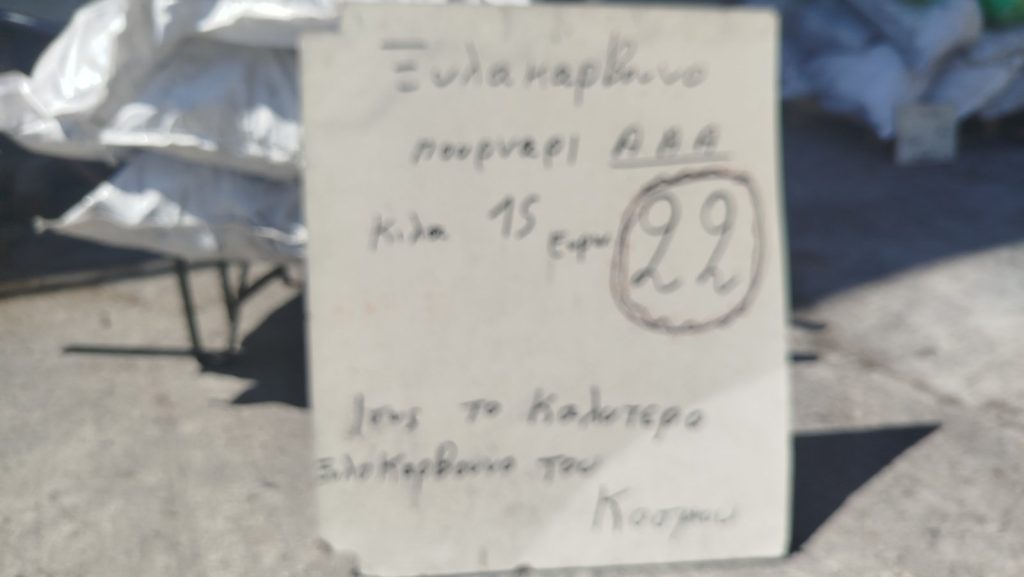 Ξυλακαρβουνο
πουρναρι ΑΑΑ
Κιλα 15 Ευρω 22
Ισως το Καλυτερο
Ξυλοκαρβουνο του
Κοσμου